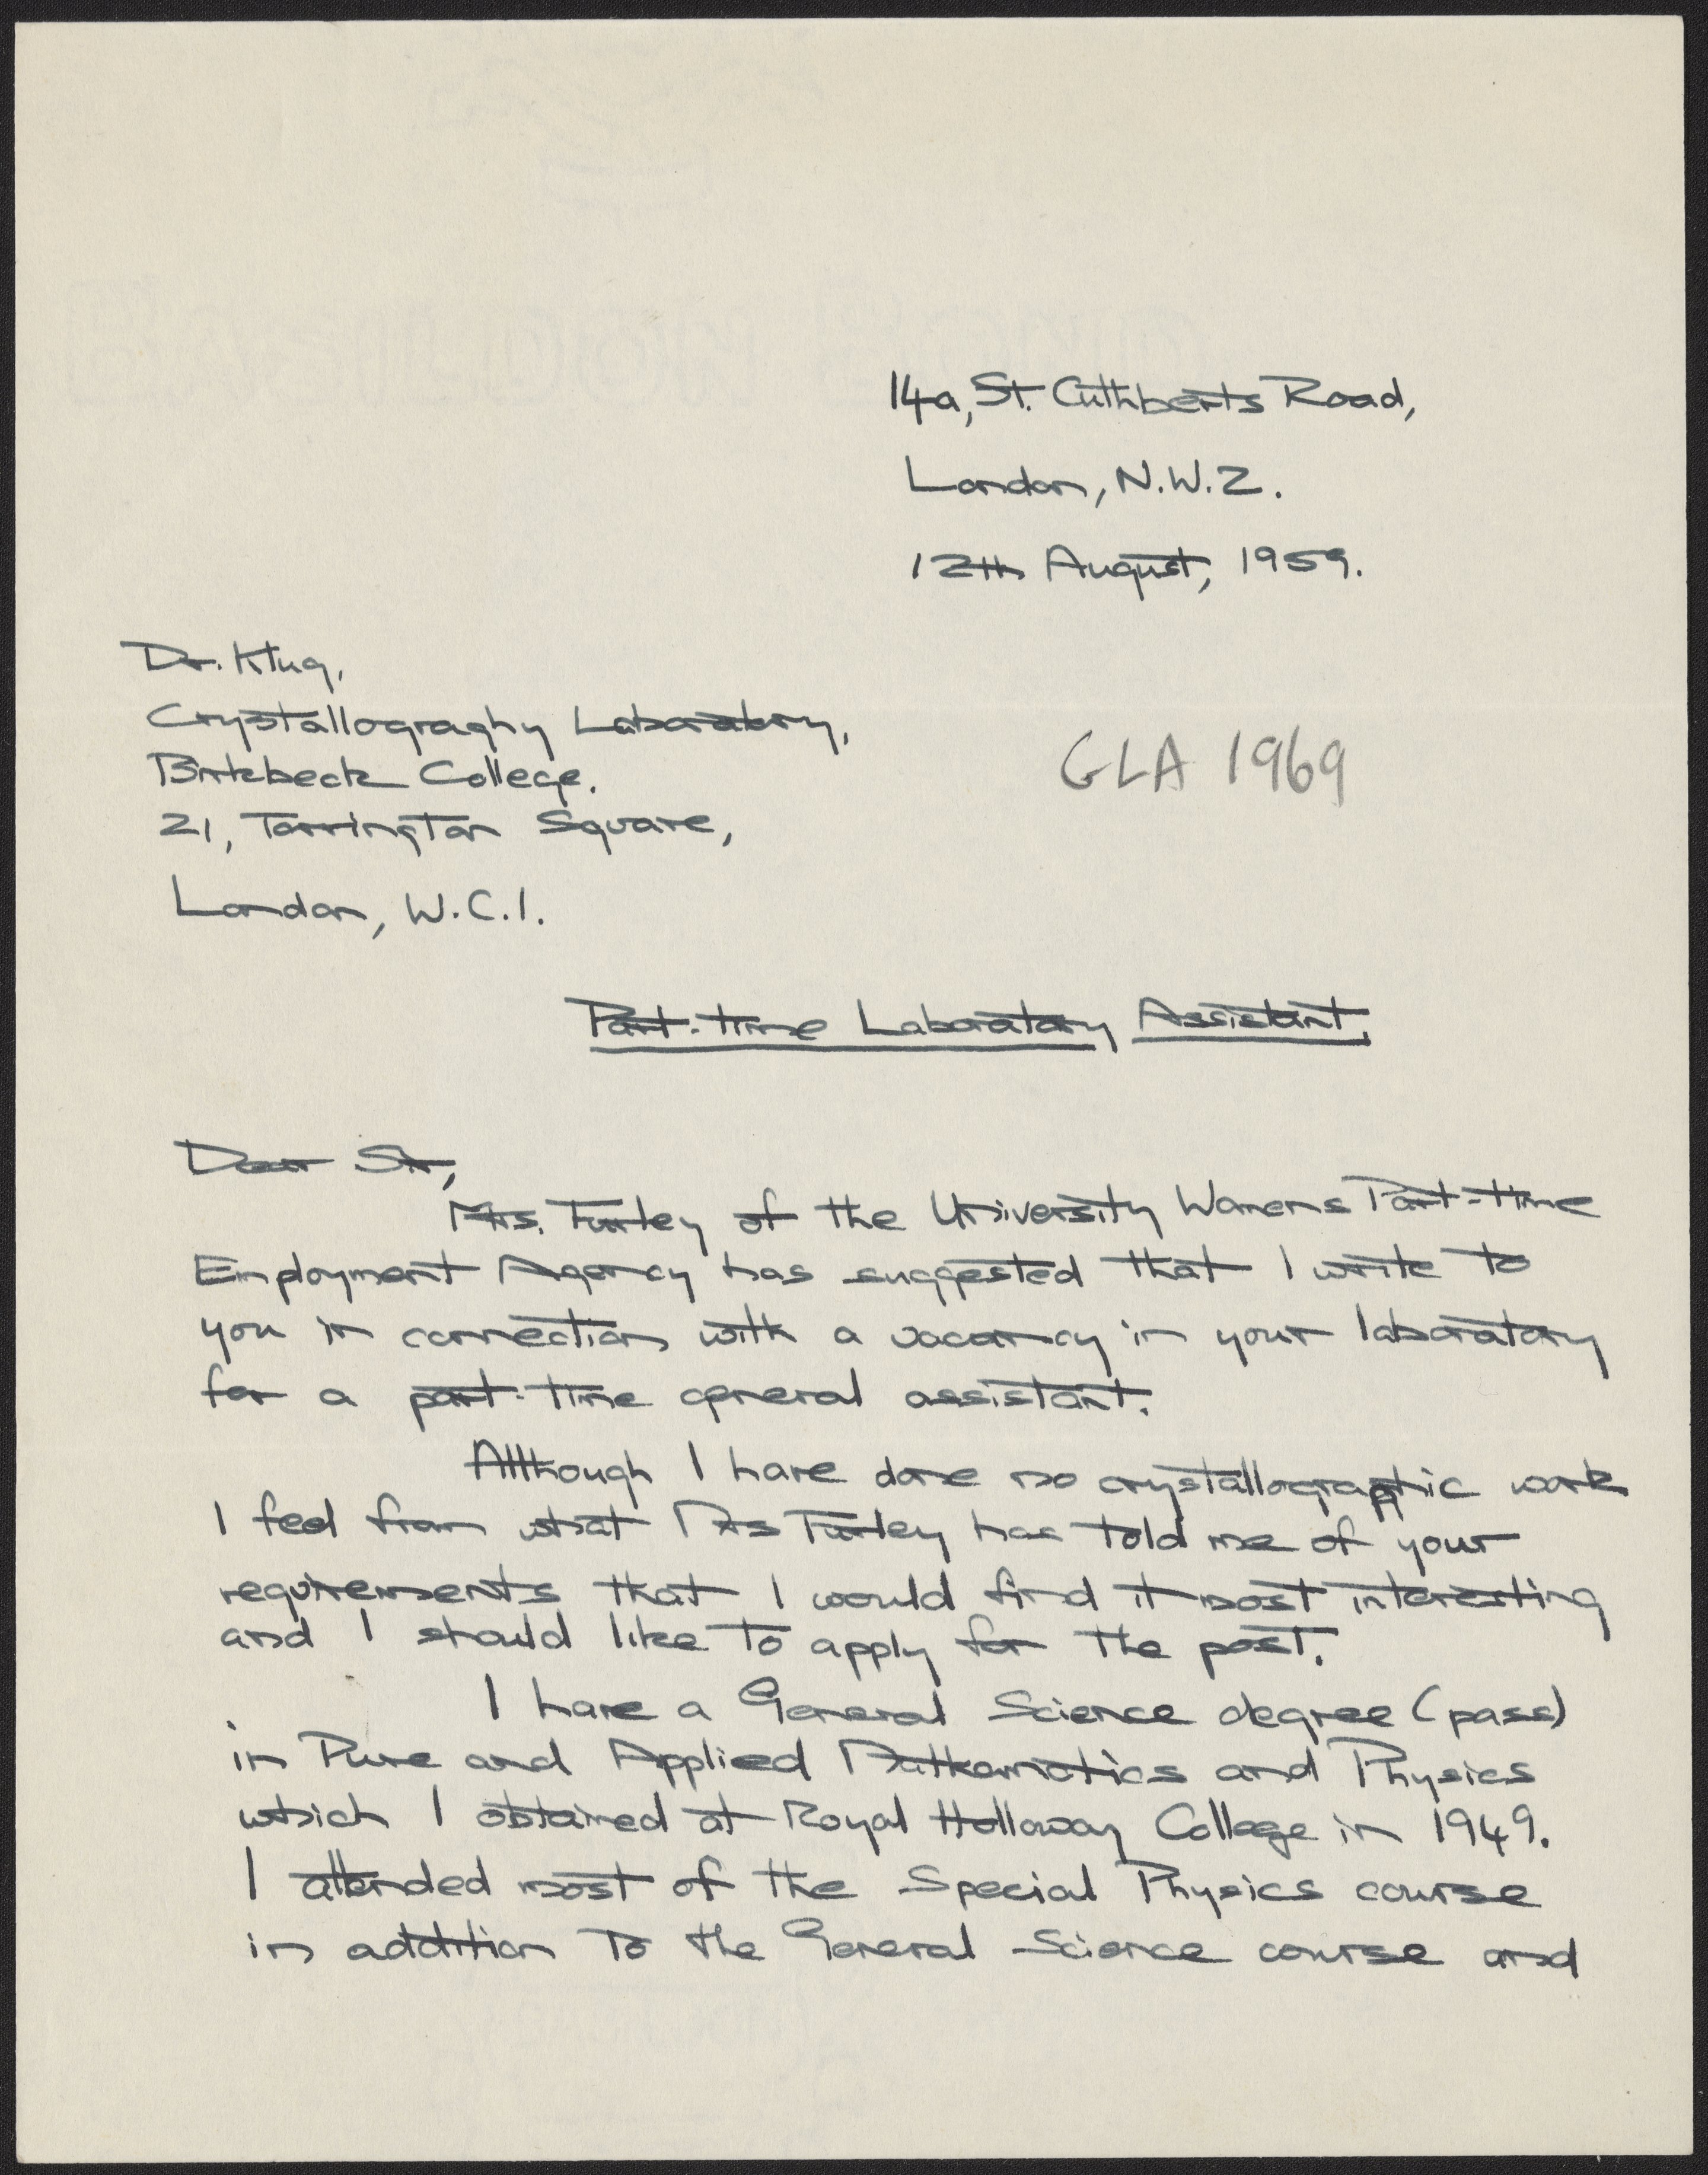 14a, St. Cuthberts Road,
London, N.W.2.
12th August, 1959.
Dr. Klug,
Crystallography Laboratory,
Birkbeck College.
21, Torrington Square,
London, W.C.1.
GLA 1969
Part-time Laboratory Assistant.
Dear Sir,
Mrs. Turley of the University Womens Part-time
Employment Agency has suggested that I write to
you in connection with a vacancy in your laboratory
for a part-time general assistant.
Although I have done no crystallographic work
I feel from what Mrs Turley has told me of your
requirements that I would find it most interesting
and I should like to apply for the post.
I have a General Science degree (pass)
in Pure and Applied Mathematics and Physics
which I obtained at Royal Holloway College in 1949.
I attended most of the Special Physics course
in addition to the General Science course and